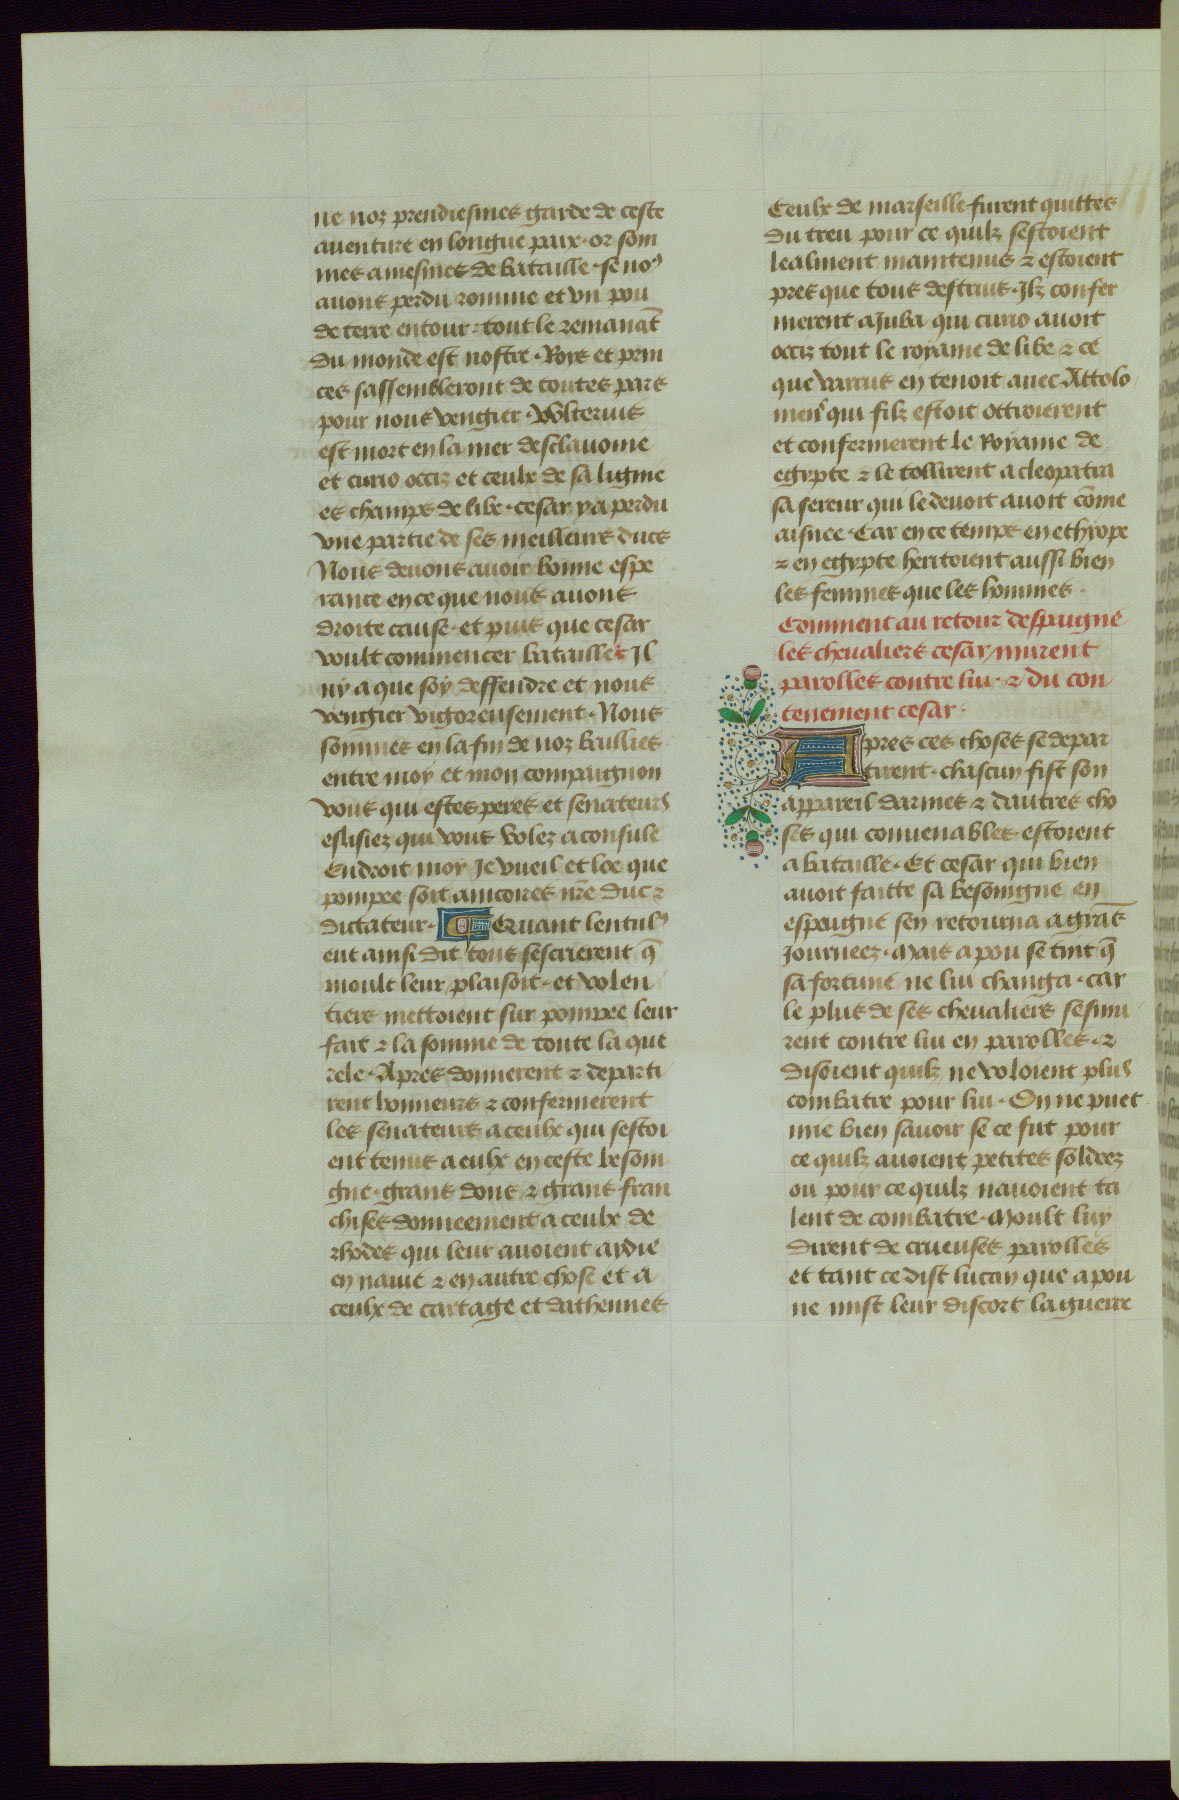 ne noz prendiesmes garde de ceste
auenture en longue paix · or som
mes a mesmes de bataille · se noꝰ
auons perdu romme et vn pou
de terre entour · tout le remanãt
du monde est nostre · Roys et prin
ces sassembleront de toutes pars
pour nous vengier · Volterius
est mort en la mer desclauonie
et curio occiz et ceulx de sa lignie
es champs de libe · cesar y a perdu
vne partie de ses meilleurs ducs
Nous deuons auoir bonne espe
rance en ce que nous auons
droite cause · et puis que cesar
voult commencer batailles Il
ny a que soy deffendre et nous
vengier vigoreusement · Nous
sommes en la fin de noz baillies
entre moy et mon compaignon
vous qui estes peres et senateurs
eslisiez qui vous volez a consule
Endroit moy Je vueil et loe que
pompee soit ancoires nr̃e duc ⁊
dictateur · Quant lentulꝰ
eut ainsi dit tous sescrierent q̃
moult leur plaisoit · et volen
tiers mettoient sur pompee leur
fait ⁊ la somme de toute la que
rele · Apres donnerent ⁊ departi
rent honneurs ⁊ confermerent
les senateurs a ceulx qui sestoi
ent tenus a eulx en ceste besoin
gne · grans dons ⁊ grans fran
chises donneement a ceulx de
rhodes qui leur auoient aidie
en nauie ⁊ en autre chose et a
ceulx de cartage et dathennes
Ceulx de marseille furent quittes
du treu pour ce quilz sestoient
lealment maintenus ⁊ estoient
pres que tous destruis · Ilz confer
merent a Juba qui curio auoit
occiz tout le royame de libe ⁊ ce
que varrus en tenoit auec A ttolo
meꝰ qui filz estoit ottroierent
et confermerent le Royame de
egypte ⁊ le tollirent a cleopatra
sa sereur qui le deuoit auoir cõme
aisnee · Car en ce temps en ethyope
⁊ en egypte heritoient aussi bien
les femmes que les hommes ·
Comment au retour despaigne
les cheualiers cesar murent
parolles contre lui · ⁊ du con
tenement cesar ·
Apres ces choses se depar
tirent · chascun fist son
appareil darmes ⁊ dautres cho
ses qui conuenables estoient
a bataille · Et cesar qui bien
auoit faitte sa besoingne en
espaigne sen retourna a grãs
Journeez · Mais a pou se tint q̃
sa fortune ne lui changa · car
le plus de ses cheualiers sesmu
rent contre lui en parolles · ⁊
disoient quilz ne voloient plus
combatre pour lui · On ne puet
mie bien sauoir se ce fut pour
ce quilz auoient petites soldeez
ou pour ce quilz nauoient ta
lent de combatre · Moult luy
dirent de crueuses parolles
et tant ce dist lucan que a pou
ne mist leur discort la guerre